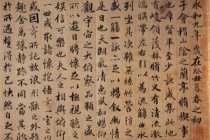 永和九年歲在癸丑暮春之初
會稽山陰之蘭亭脩稧
群賢畢至少長咸集此
崇山峻領茂林脩竹又有清流激
湍暎帶左右引以為流觴曲
列坐其次雖無絲竹管弦
盛一觴一詠亦足以暢敘幽情
是日也天朗氣清惠風和暢
觀宇宙之大俯察品類之
所以遊目騁懷足以極視聽
娛信可樂也夫人之相與俯仰
一世或取諸懷抱悟言一室之
或因寄所託放浪形骸之外
趣舍萬殊靜躁不同當其欣
於所遇蹔得於己怏然自足不